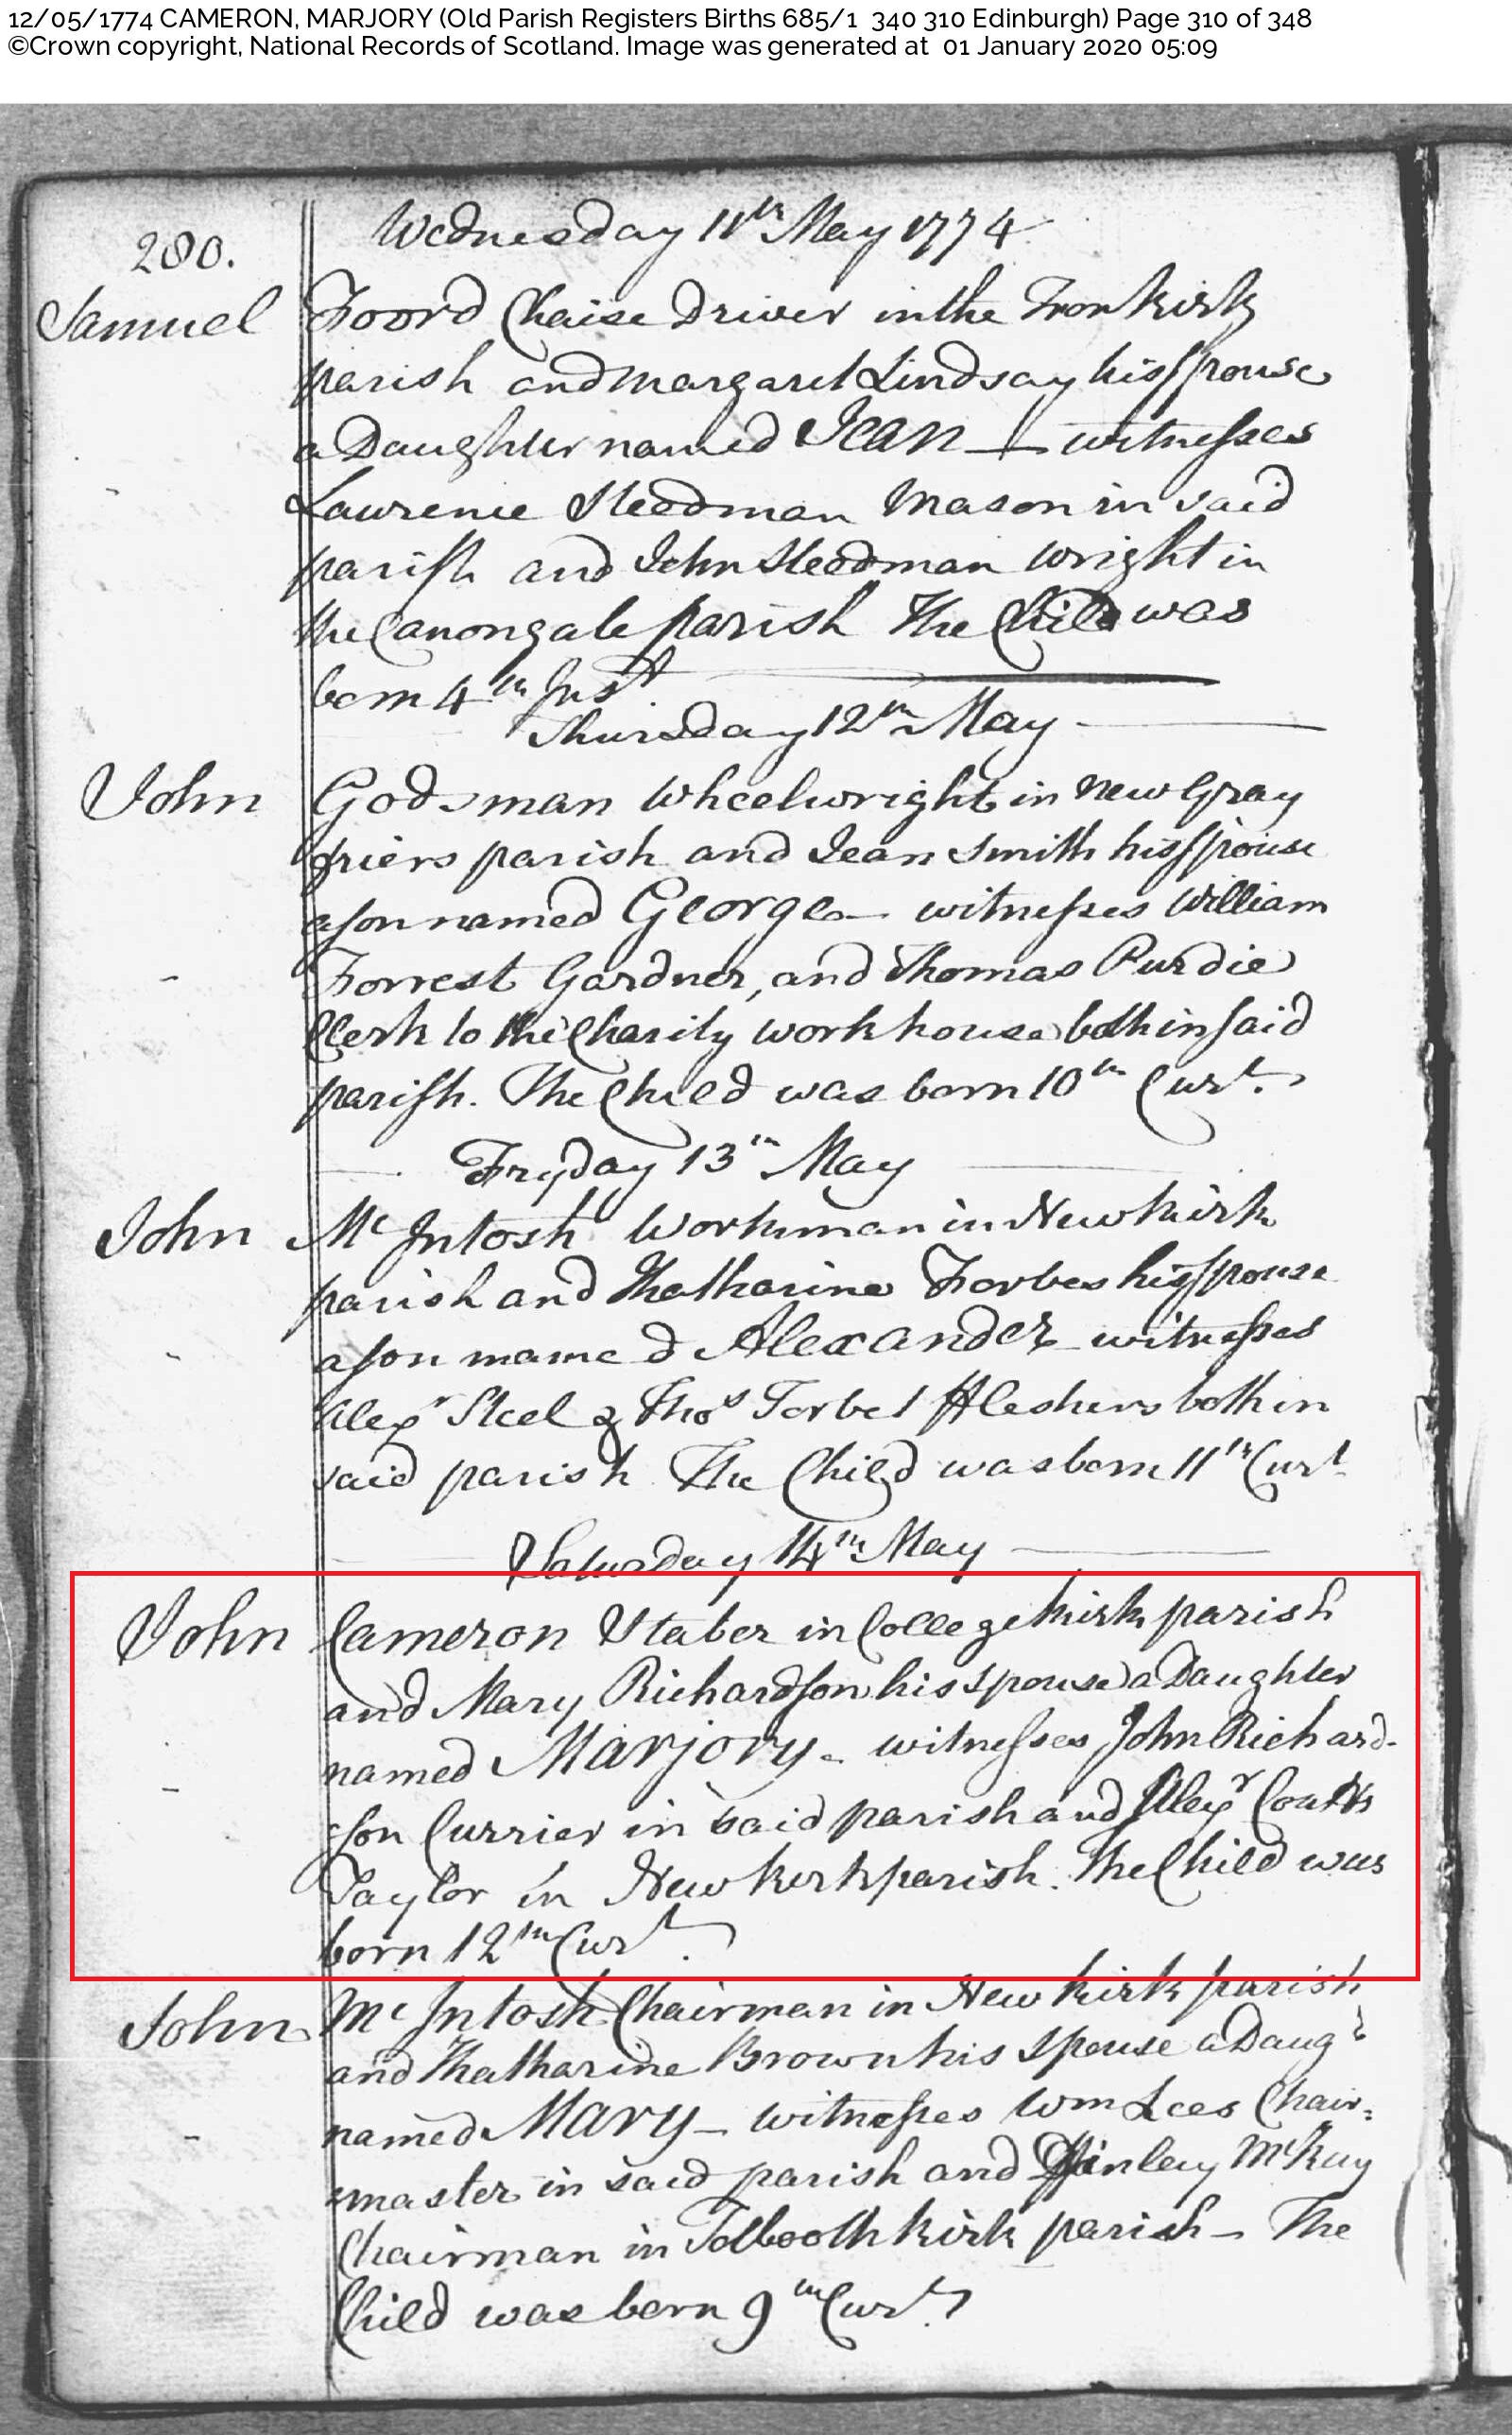 12/05/1774 CAMERON, MARJORY (Old Parish Registers Births 685/1 340 310 Edinburgh) Page 310 of 348
©Crown copyright, National Records of Scotland. Image was generated at 01 January 2020 05:09
280.
Wednesday 11th May 1774
Samuel Foord Chaise Driver in the Tron kirk
parish and Margaret Lindsay his spouse
a Daughter named Jean — witnesses
Lawrence Steedman Mason in said
parish and John Steedman wright in
the Canongate parish The Child was
born 4th Inst
Thursday 12th May
John Godsman Wheelwright in New Gray
friers parish and Jean Smith his spouse
a son named George — witnesses William
Forrest Gardner, and Thomas Purdie
Clerk to the Charity workhouse both in said
parish. The Child was born 10th Curt.
Fryday 13th May
John McIntosh Workman in New kirk
parish and Khatharine Forbes his spouse
a son named Alexander witnesses
Alexr Steel & Thos Torbet Fleshers both in
said parish The Child was born 11th Curt
Saturday 14th May
John Cameron Stabler in College kirk parish
and Mary Richardson his spouse a Daughter
named Marjory - witnesses John Richard-
son Currier in said parish and Alexr Coutts
Taylor in New kirk parish. The Child was
born 12th Curt.
John McIntosh Chairman in New kirk parish
and Khatharine Brown his spouse a Daugr
named Mary — witnesses Wm Lees Chair=
master in said parish and Finley McKay
Chairman in Tolbooth kirk parish — The
Child was born 9th Curt.